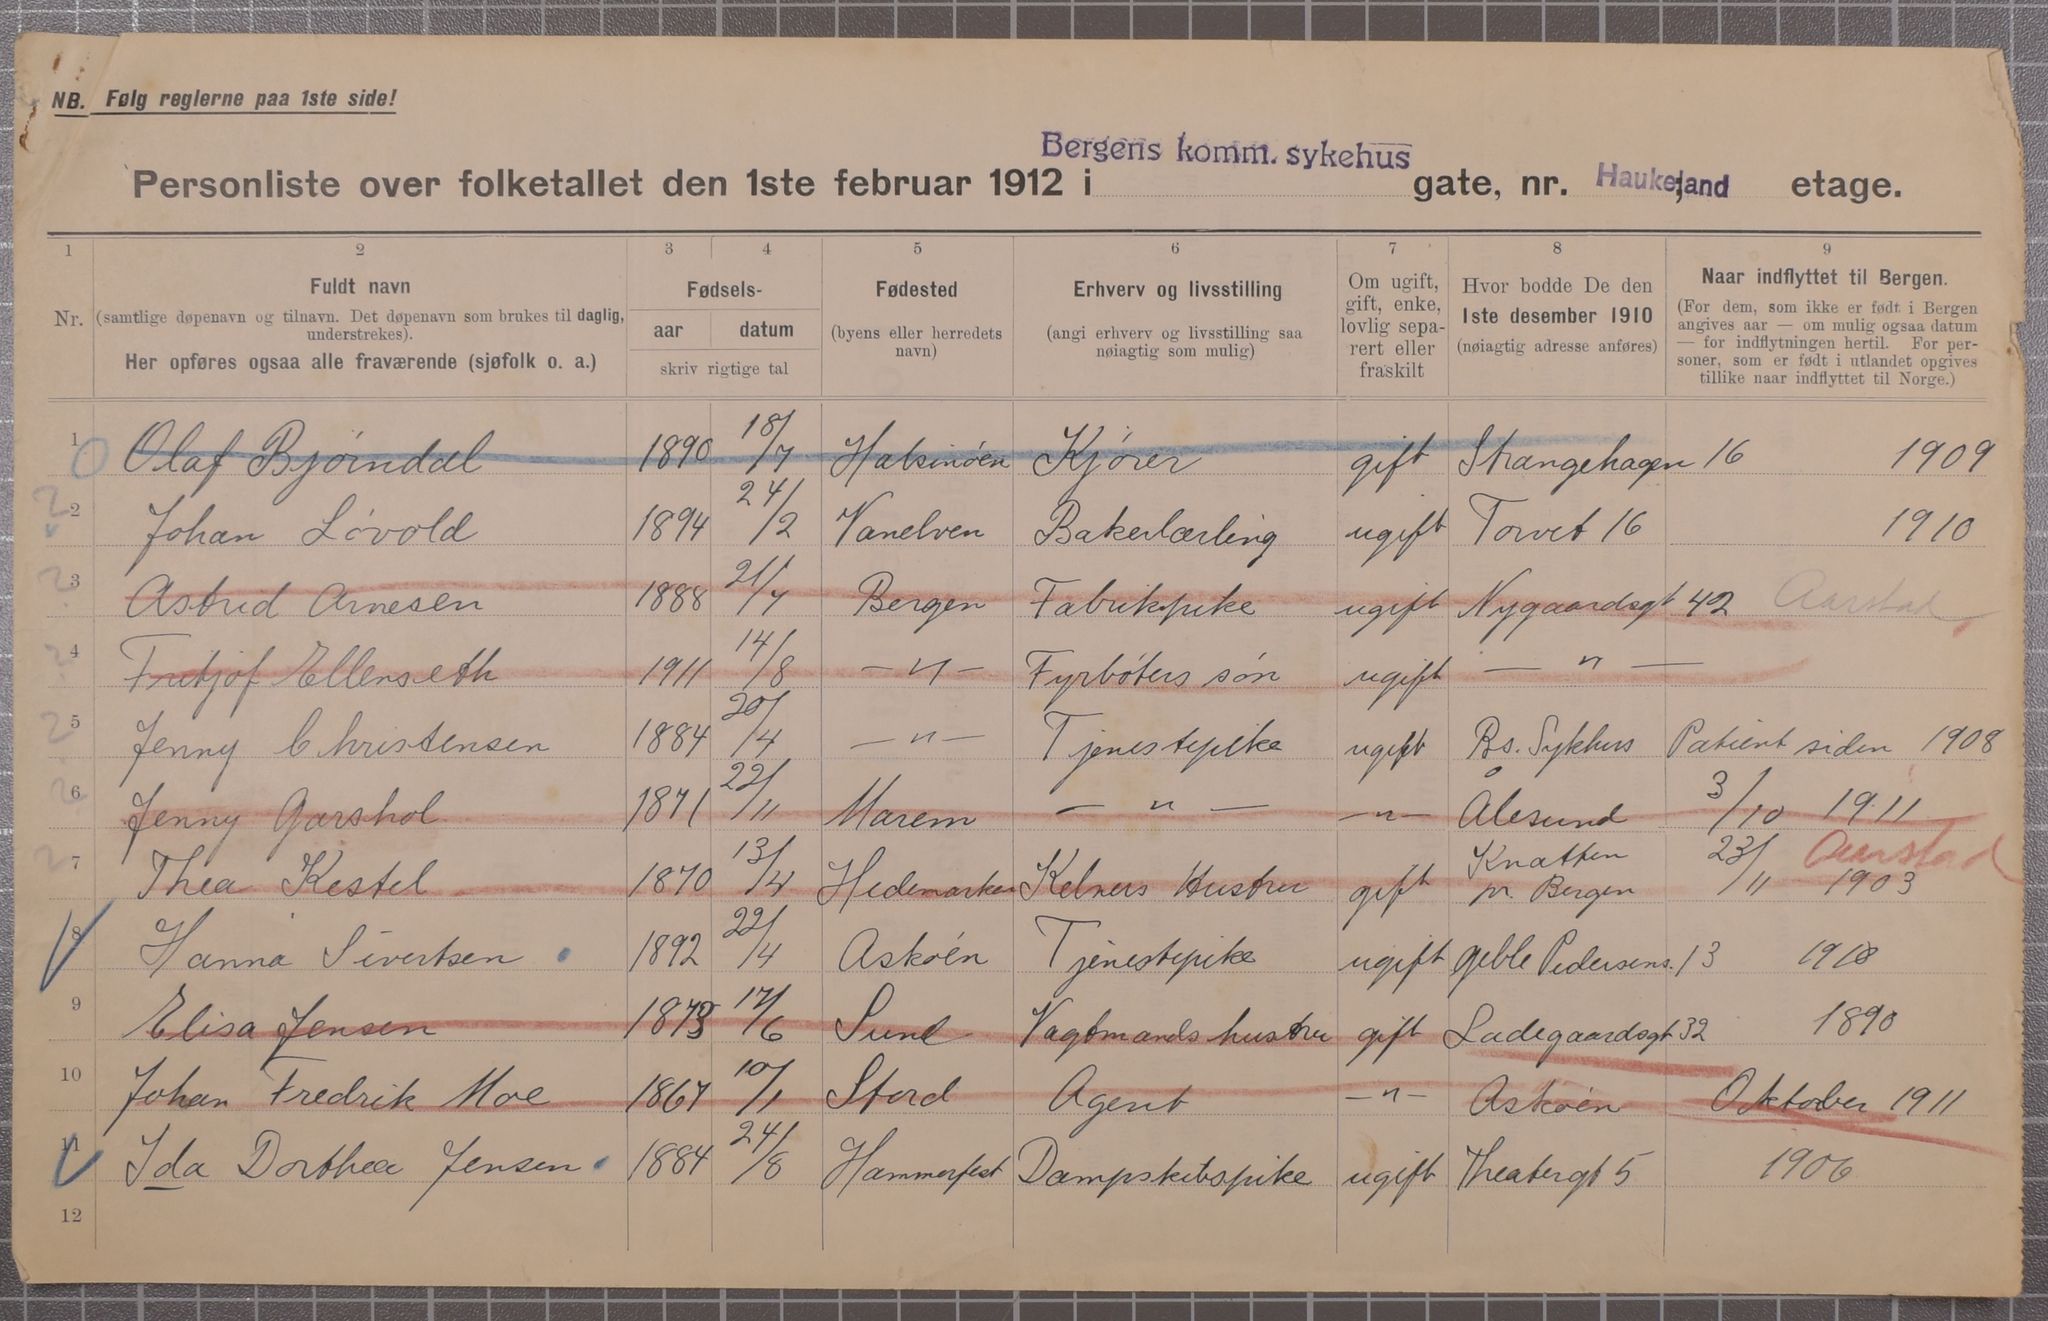 NB. Følg reglerne paa 1ste side!
Bergens komm. sykehus
Personliste over folketallet den 1ste februar 1912 i gate, nr. Haukeland etage.
1 2 3 4 5 6 7 8 9
Nr.
Fuldt navn
(samtlige døpenavn og tilnavn. Det døpenavn som brukes til daglig,
understrekes).
Her opføres ogsaa alle fraværende (sjøfolk o. a.)
Fødsels-
aar datum
skriv rigtige tal
Fødested
(byens eller herredets
navn)
Erhverv og livsstilling
(angi erhverv og livsstilling saa
nøiagtig som mulig)
Om ugift,
gift, enke,
lovlig sepa-
rert eller
fraskilt
Hvor bodde De den
1ste desember 1910
(nøiagtig adresse anføres)
Naar indflyttet til Bergen.
(For dem, som ikke er født i Bergen
angives aar — om mulig ogsaa datum
— for indflytningen hertil. For per-
soner, som er født i utlandet opgives
tillike naar indflyttet til Norge.)
1 Olaf Bjørndal 1890 18/7 Halsinøen Kjører gift Strangehagen 16 1909
2 Johan Løvold 1894 24/2 Vanelven Bakerlærling ugift Torvet 16 1910
3 Astrid Arnesen 1888 21/7 Bergen Fabrikpike ugift Nygaardsgt 42 Aarstad
4 Fritjof Ellenseth 1911 14/8 — " — Fyrbøters søn ugift — " —
5 Jenny Christensen 1884 20/4 — " — Tjenestepike ugift Bs. Sykhus Patient siden 1908
6 Jenny Garshol 1871 22/11 Marem — " — — " — Ålesund 3/10 1911
7 Thea Kestel 1870 13/4 Hedemarken Kelners Hustru gift Knatten pr. Bergen 23/11 1903 Aarstad
8 Hanna Sivertsen 1892 22/4 Askøen Tjenestepike ugift Geble Pedersens. 13 1910
9 Elisa Jensen 1873 17/6 Sund Vagtmands hustru gift Ladegaardsgt 32 1890
10 Johan Fredrik Moe 1867 10/1 Stord Agent — " — Askøen Oktober 1911
11 Ida Dorthea Jensen 1884 24/8 Hammerfest Dampskibspike ugift Theatergt 5 1906
12